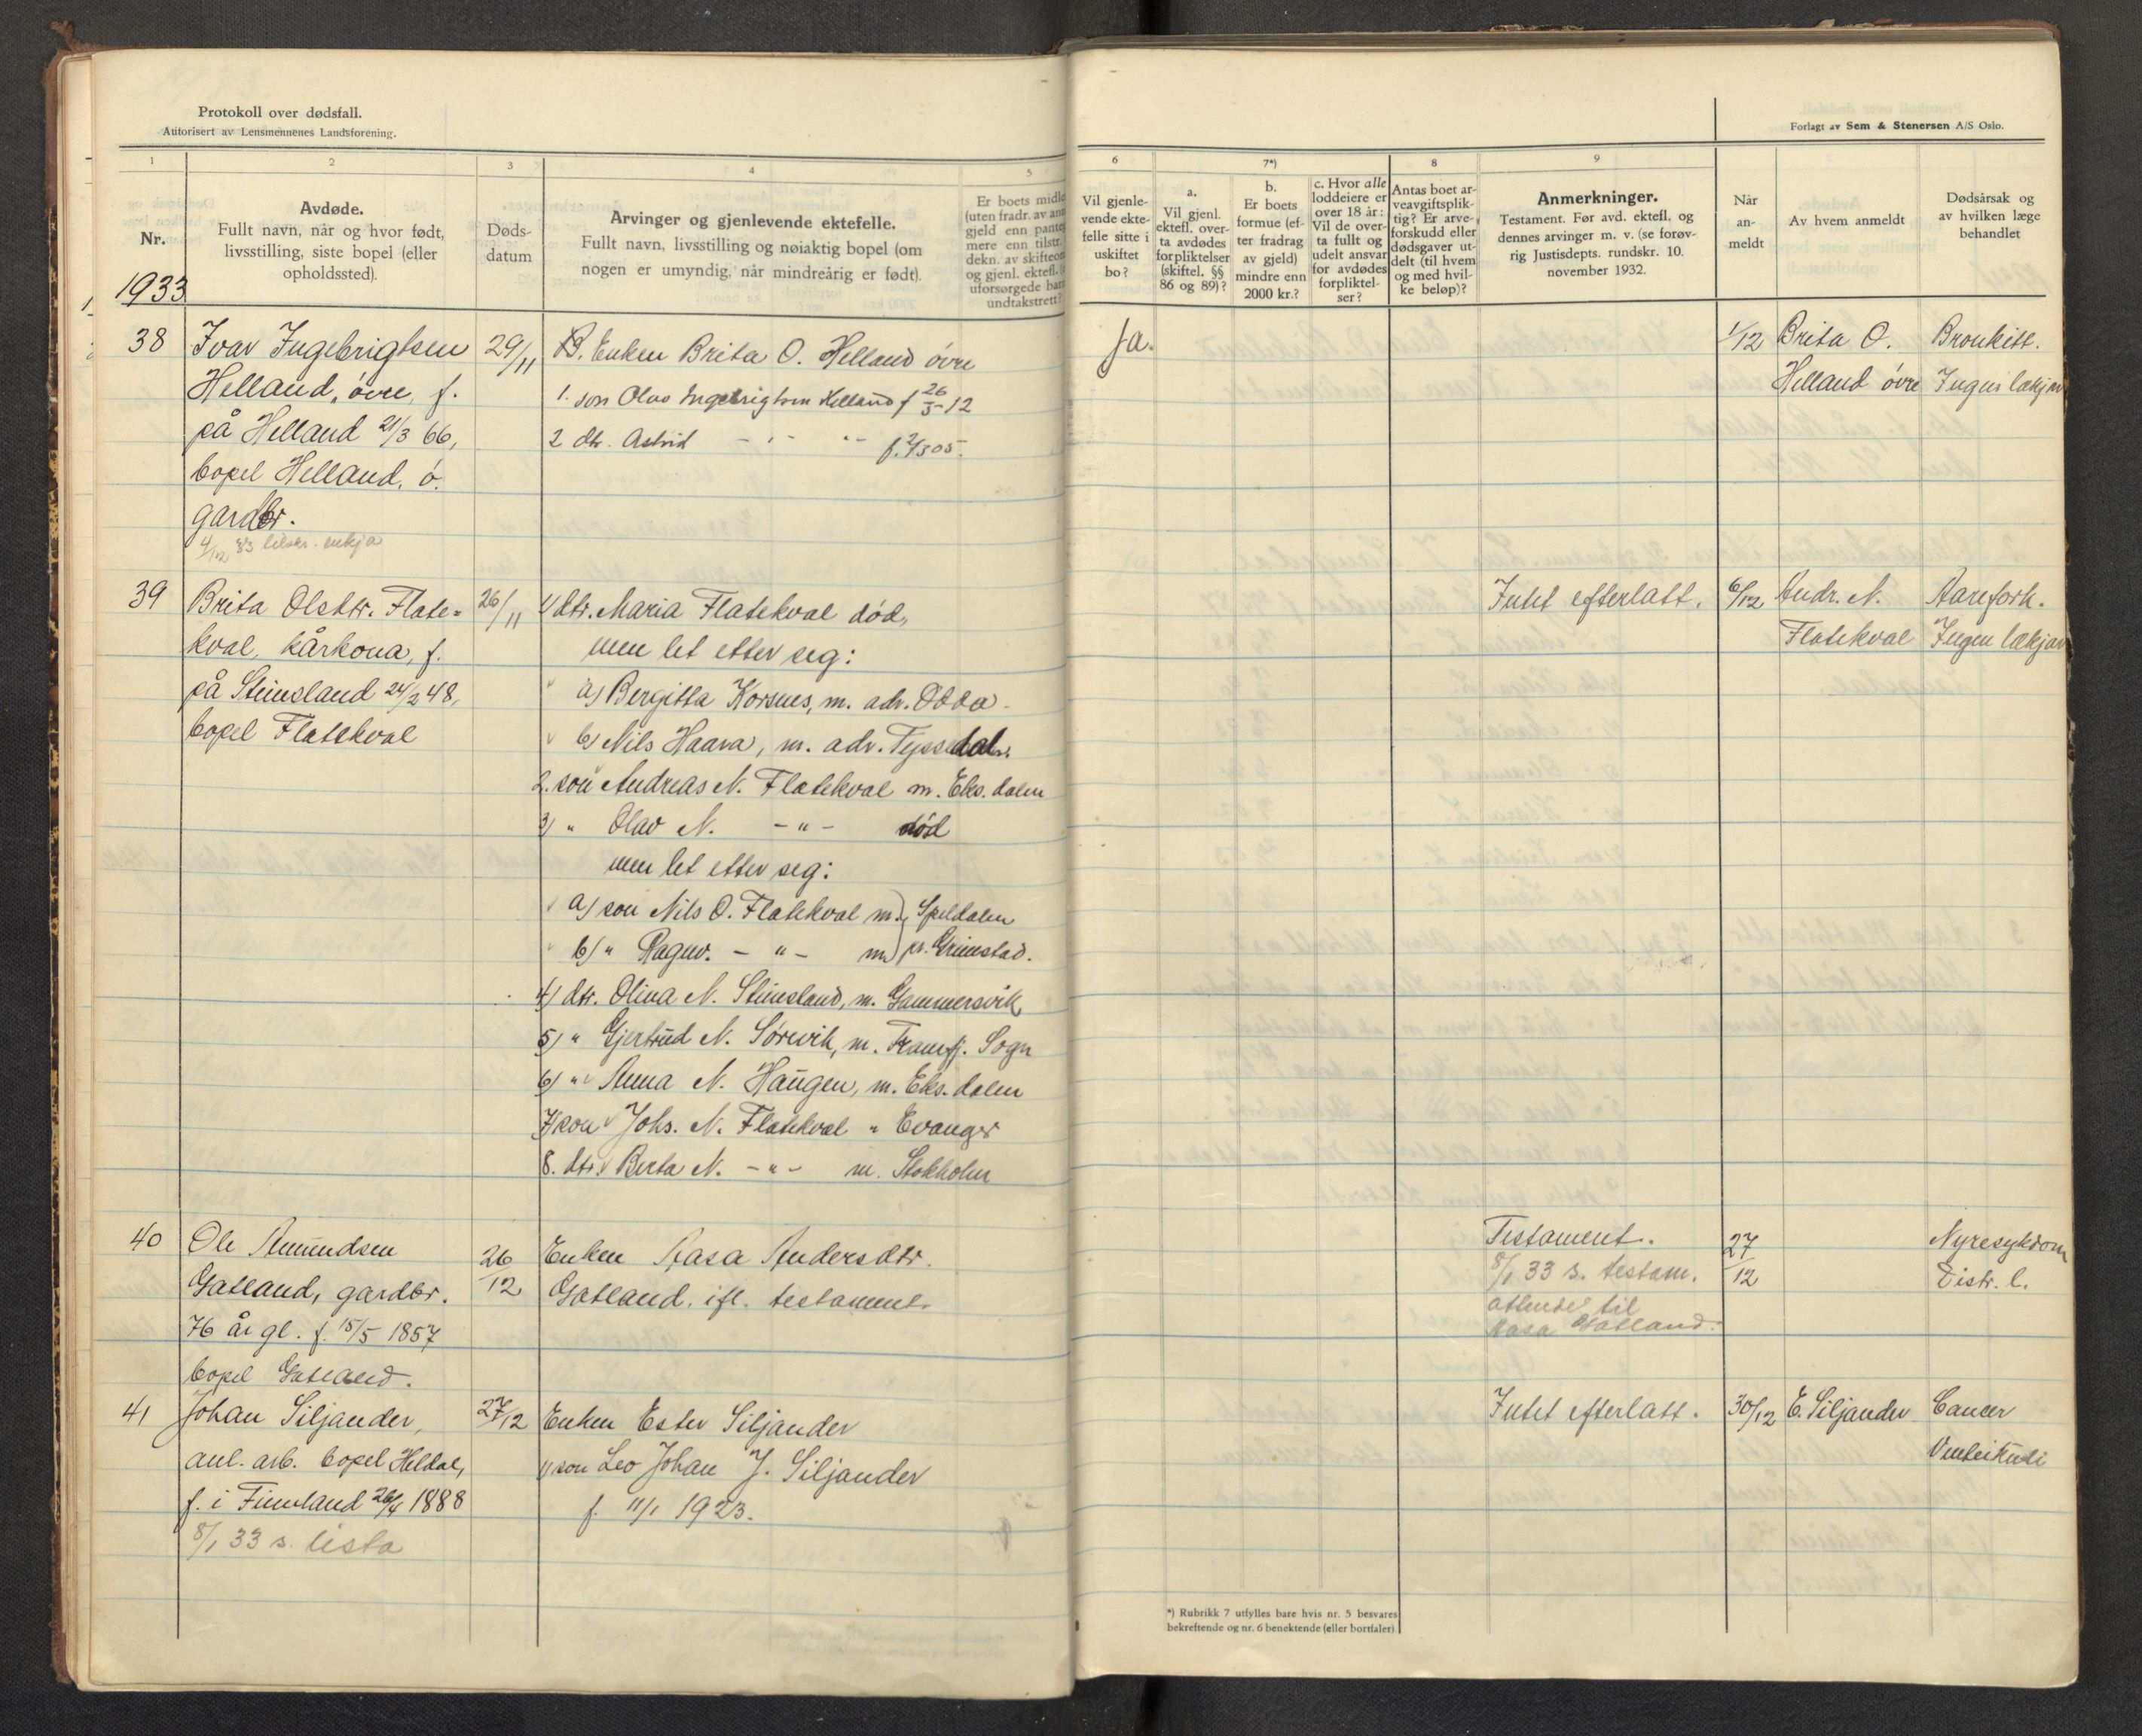 Protokoll over dødsfall.
Autorisert av Lensmennenes Landsforening.
1
2
3
4
5
Nr.
Avdøde.
Fullt navn, når og hvor født,
livsstilling, siste bopel (eller
opholdssted).
Døds-
datum
Arvinger og gjenlevende ektefelle.
Fullt navn, livsstilling og nøiaktig bopel (om
nogen er umyndig, når mindreårig er født).
Er boets midle
(uten fradr. av ann
gjeld enn pante
mere enn tilstr.
dekn. av skifteom
og gjenl. ektefl.
uforsørgede barn
undtakstrett?
1933
38
Ivar Ingebrigtsen
Helland, øvre, f.
på Helland 21/3 66,
bopel Helland, ø.
gardbr.
4/12 33
29/11
Enken Brita O. Helland øvre
1. son Olav Ingebrigtsen Helland f 26/5-12
2 dtr. Astrid - " - " -
39
Brita Olsdtr. Flate-
kval, kårkona, f.
på Steinsland 24/2 48,
bopel Flatekval
26/11
1/ dtr. Maria Flatekval død,
men let etter seg:
a) Bergitta Korsnes, m. adr. Odda
b) Nils Haara, m. adr. Tyssedal.
2. son Andreas N. Flatekval m. Eks.dalen
3) " Olav N. - " - død
men let etter seg:
a) son Nils O. Flatekval m. Speldalen
b) " Ragnv. - " - m. pr. Grimstad.
4) dtr. Olina N. Steinsland, m. Gammersvik
5) " Gjertrud N. Sørevik, m. Framfj. Sogn
6) " Anna N. Haugen, m. Eks.dalen
7) son Johs. N. Flatekval " Evanger
8. dtr. Berta N. - " - m. Stokholm
40
Ole Amundsen
Gatland, gardbr.
76 år gl. f. 15/5 1857
bopel Gatland.
26/12
Enken Aasa Andersdtr.
Gatland. ifl. testament.
41
Johan Siljander,
anl. arb. bopel Heldal,
f. i Finnland 26/4 1888
8/1 33 s. lista
27/12
Enken Ester Siljander
1) son Leo Johan J. Siljander
f. 11/1 1923.
Forlagt av Sem & Stenersen A/S Oslo.
6
7*)
8
9
Vil gjenle-
vende ekte-
felle sitte i
uskiftet
bo?
a.
Vil gjenl.
ektefl. over-
ta avdødes
forpliktelser
(skiftel. §§
86 og 89)?
b.
Er boets
formue (ef-
ter fradrag
av gjeld)
mindre enn
2000 kr.?
c. Hvor alle
loddeiere er
over 18 år:
Vil de over-
ta fullt og
udelt ansvar
for avdødes
forpliktel-
ser?
Antas boet ar-
veavgiftsplik-
tig? Er arve-
forskudd eller
dødsgaver ut-
delt (til hvem
og med hvil-
ke beløp)?
Anmerkninger.
Testament. Før avd. ektefl. og
dennes arvinger m. v. (se forøv-
rig Justisdepts. rundskr. 10.
november 1932.
Når
an-
meldt
Av hvem anmeldt
Dødsårsak og
av hvilken læge
behandlet
Ja.
1/12
Brita O.
Helland øvre
Bronkitt.
Ingen lækjar
Intet efterlatt.
6/12
Andr. N.
Flatekval
Aarefork.
Ingen lækjar
Testament.
8/1 33 s. testam.
attende til
Aasa Gatland.
27/12
Nyresykdom
Distr. l.
Intet efterlatt.
30/12
E. Siljander
Cancer
*) Rubrikk 7 utfylles bare hvis nr. 5 besvares
bekreftende og nr. 6 benektende (eller bortfaler)